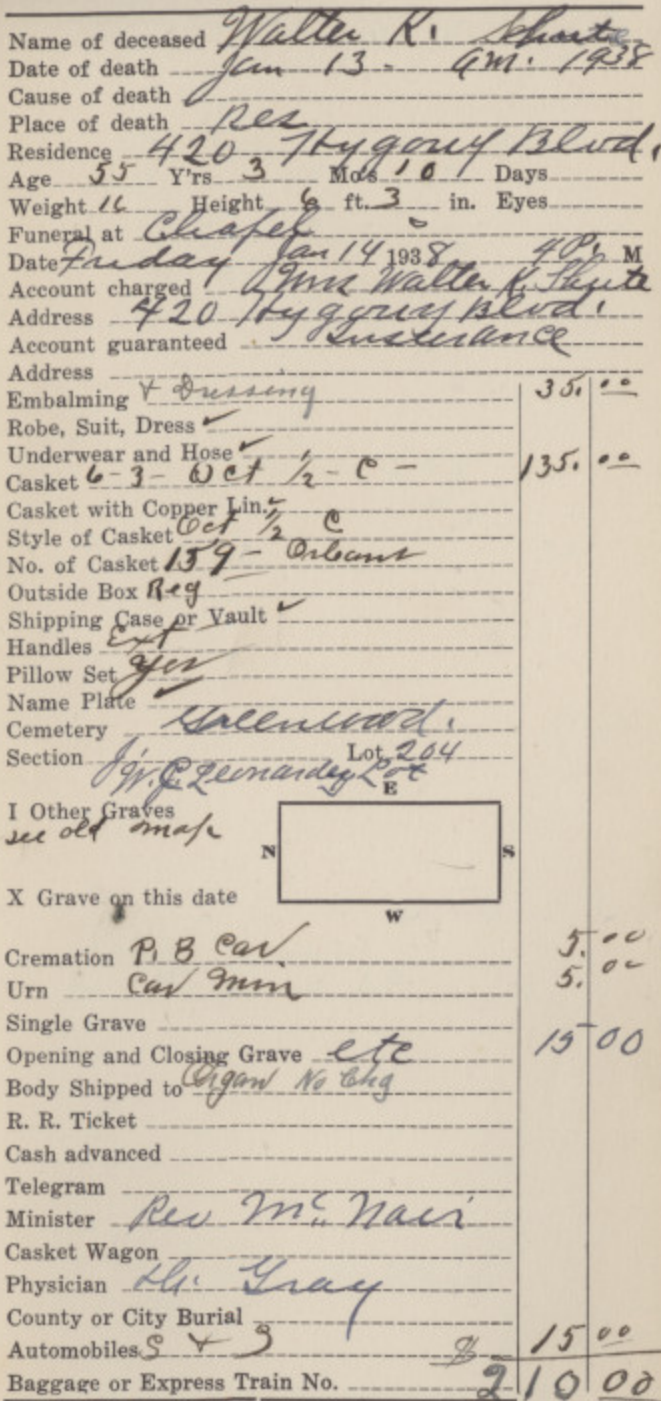 Name of deceased Walter K. Shute
Date of death Jan 13 - a.m. 1938
Cause of death
Place of death Res
Residence 420 Hygouy Blvd.
Age 55 Y'rs 3 Mo's 10 Days
Weight 16 Height 6 ft. 3 in. Eyes
Funeral at Chapel
Date Friday Jan 14 1938 4 P. M
Account charged Mrs Walter K. Shute
Address 420 Hygouy Blvd.
Account guaranteed Insurance
Address
Embalming & Dressing 35.00
Robe, Suit, Dress ✓
Underwear and Hose ✓
Casket 6-3- Oct 1/2 - C - 135.00
Casket with Copper Lin. ✓
Style of Casket Oct 1/2 C
No. of Casket 159 - Orleans
Outside Box Reg
Shipping Case or Vault ✓
Handles Ext
Pillow Set yes
Name Plate ✓
Cemetery Greenwood.
Section Lot 204
W. C. Leonardy Lot
E
I Other Graves
see old map
N S
X Grave on this date
W
Cremation P. B Car 5.00
Urn Car Min 5.00
Single Grave
Opening and Closing Grave etc 15 00
Body Shipped to Organ No Chg
R. R. Ticket
Cash advanced
Telegram
Minister Rev McNair
Casket Wagon
Physician Dr. Gray
County or City Burial
Automobiles S & S $ 15 00
Baggage or Express Train No. 210 00